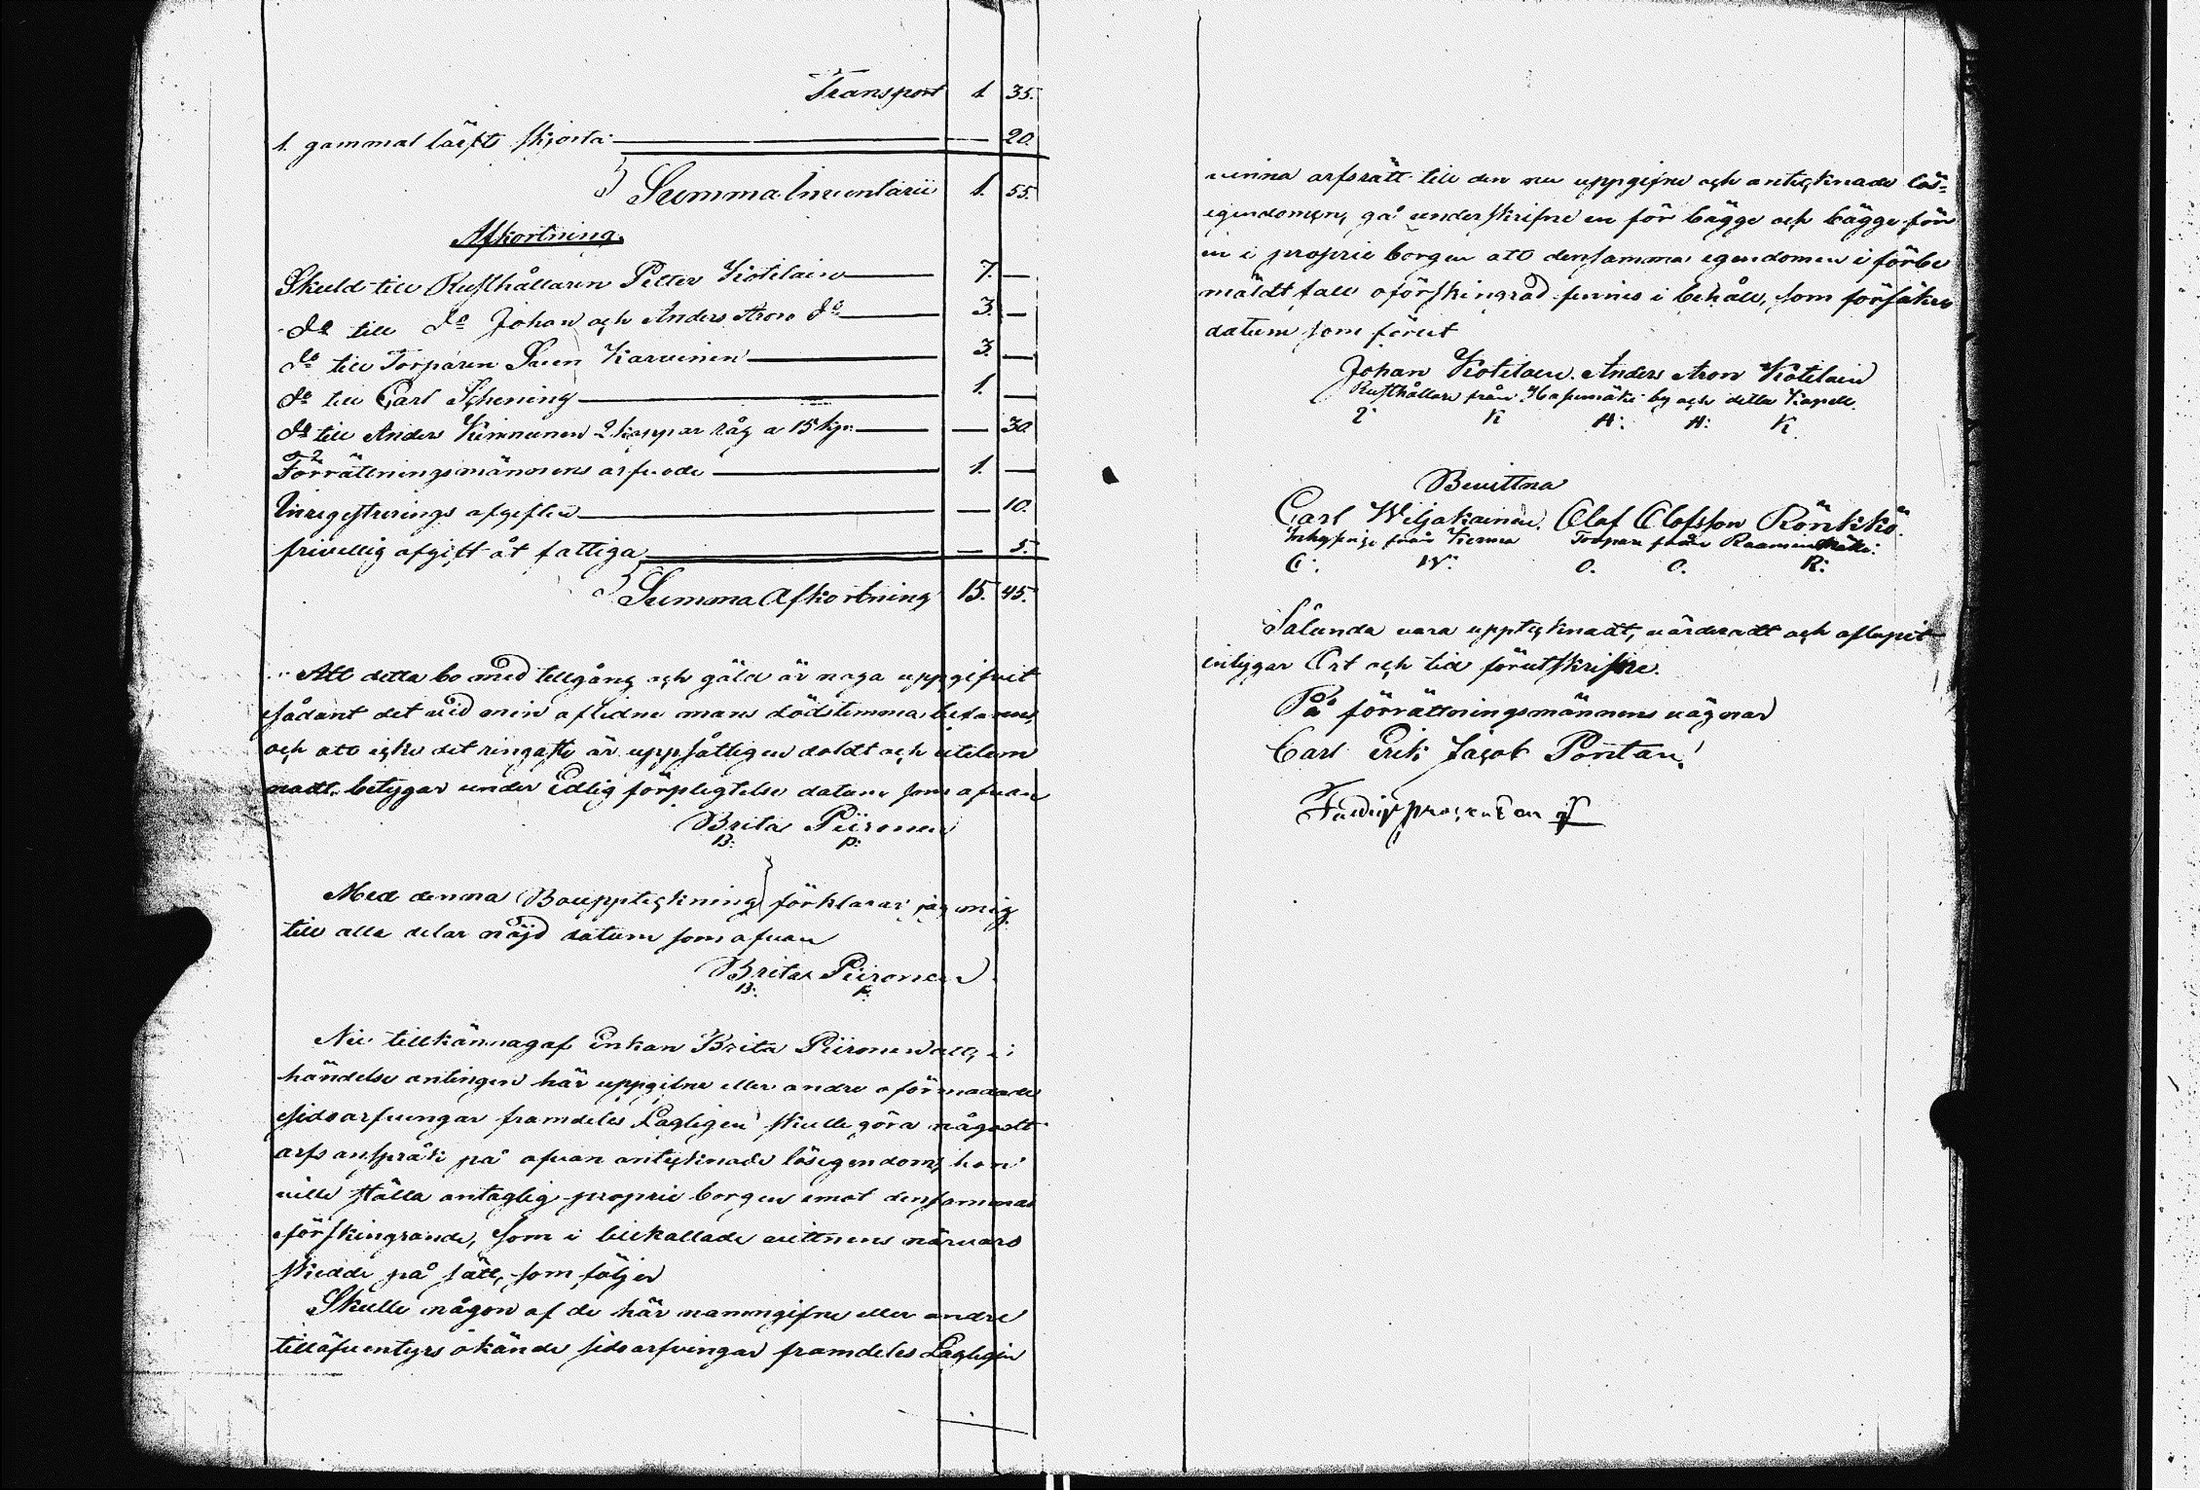 Transport 1. 35.
1. gammal lärfts skjorta — 20.
Summa Inventarii 1. 55.
Afkortning.
Skuld till Rusthållaren Petter Kotilain 7. —
do till do Johan och Anders Aron do 3. —
do till Torparen Sven Karvinen 3. —
do till Carl Schening 1. —
do till Anders Kinnunen 2 kappar råg a 15 kp. — 30.
Förrättningsmännens arfvode 1. —
Inregistrerings afgiften — 10.
frivillig afgift åt fattiga — 5.
Summa Afkortning 15. 45.
Att detta bo med tillgång och gäld är noga uppgifvit
sådant det vid min aflidne mans dödstimma befanns,
och att icke det ringaste är uppsåtligen doldt och utelem
nadt, betygar under Edlig förpligtelse datum som ofvan
Brita Piironen
B: P:
Med denna Bouppteckning förklarar jag mig
till alla delar nöjd datum som ofvan
Brita Piironen
B: P:
Nu tillkännagaf Enkan Brita Piironen att, i
händelse antingen här uppgifne eller andre oförmodade
sidoarfvingar framdeles Lagligen skulle göra någodt
arfs anspråk på ofvan antecknade lösegendom, hon
ville ställa antaglig proprie borgen emot densammas
förskingrande, som i tillkallade vittnens närvaro
skedde på sätt, som följer
Skulle någon af de här namngifne eller andre
tilläfventyrs okände sidoarfvingar framdeles Lagligen
vinna arfsrätt till den nu uppgifne och antecknade lös-
egendomen, gå underskrifne en för bägge och bägge för
en i proprie borgen att densamma egendomen i förbe
mäldt fall oförskingrad finnes i behåll, som försäkras
datum som förut
Johan Kotilain. Anders Aron Kotilain
Rusthållare från Hapumäki by och detta Kapell.
I: K A: A: K
Bevittna
Carl Wiljakainen. Olof Olofsson Rönkkö.
Inhysing från Kermo Torpare från Raaminmäki.
C: W: O. O. R:
Sålunda vara upptecknadt, värderadt och aflupit
intygar Ort och tid förutskrifne.
På förrättningsmännens vägnar
Carl Erik Jacob Pontan.